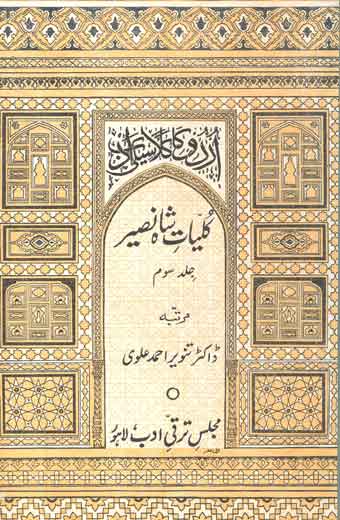 اردو کا کلاسیکی ادب
کلیاتِ شاہ نصیر
جلد سوم
مرتبہ
ڈاکٹر تنویر احمد علوی
مجلس ترقیِ ادب لاہور